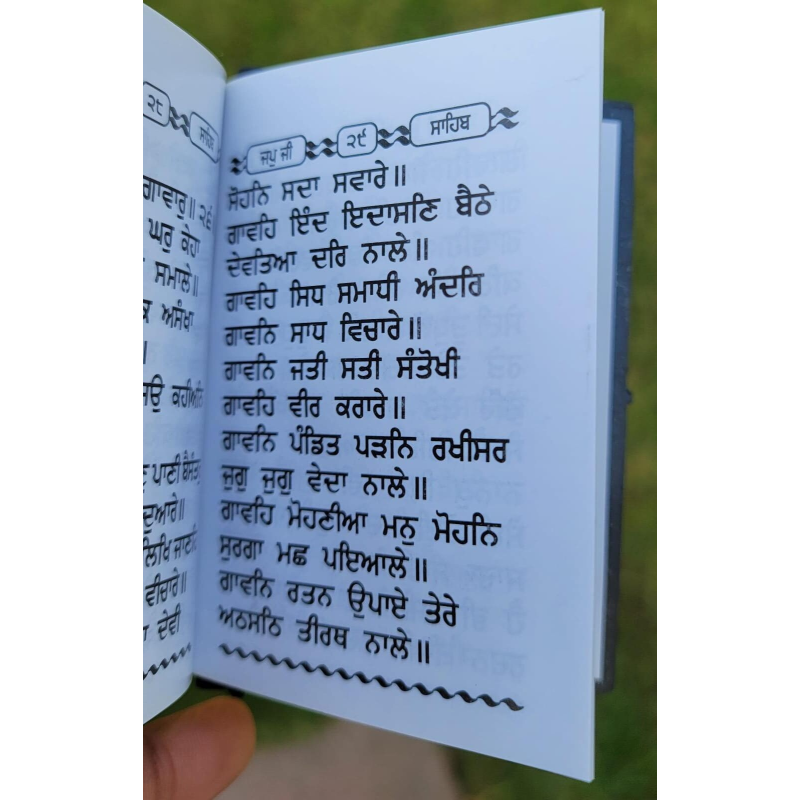 ੨੮ ਸਾਹਿਬ
ਗਾਵਾਰੁ॥ ੨੬
ਘਰੁ ਕੇਹਾ
ਸਮਾਲੇ॥
ਅਸੰਖਾ
॥
ਕਹੀਅਨਿ
ਪਾਣੀ ਬੈਸੰਤਰੁ
ਦੁਆਰੇ॥
ਲਿਖਿ
ਵੀਚਾਰੇ॥
ਦੇਵੀ
ਜਪੁ ਜੀ ੨੯ ਸਾਹਿਬ
ਸੋਹਨਿ ਸਦਾ ਸਵਾਰੇ॥
ਗਾਵਹਿ ਇੰਦ ਇਦਾਸਣਿ ਬੈਠੇ
ਦੇਵਤਿਆ ਦਰਿ ਨਾਲੇ॥
ਗਾਵਹਿ ਸਿਧ ਸਮਾਧੀ ਅੰਦਰਿ
ਗਾਵਨਿ ਸਾਧ ਵਿਚਾਰੇ॥
ਗਾਵਨਿ ਜਤੀ ਸਤੀ ਸੰਤੋਖੀ
ਗਾਵਹਿ ਵੀਰ ਕਰਾਰੇ॥
ਗਾਵਨਿ ਪੰਡਿਤ ਪੜਨਿ ਰਖੀਸਰ
ਜੁਗੁ ਜੁਗੁ ਵੇਦਾ ਨਾਲੇ॥
ਗਾਵਹਿ ਮੋਹਣੀਆ ਮਨੁ ਮੋਹਨਿ
ਸੁਰਗਾ ਮਛ ਪਇਆਲੇ॥
ਗਾਵਨਿ ਰਤਨ ਉਪਾਏ ਤੇਰੇ
ਅਠਸਠਿ ਤੀਰਥ ਨਾਲੇ॥